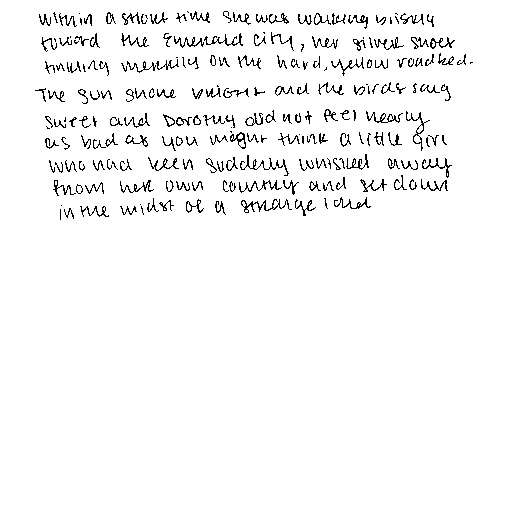 within a short time she was walking briskly
toward the Emerald City, her silver shoes
tinkling merrily on the hard, yellow roadbed.
The sun shone bright and the birds sang
sweet and Dorothy did not feel nearly
as bad as you might think a little girl
who had been suddenly whisked away
from her own country and set down
in the midst of a strange land